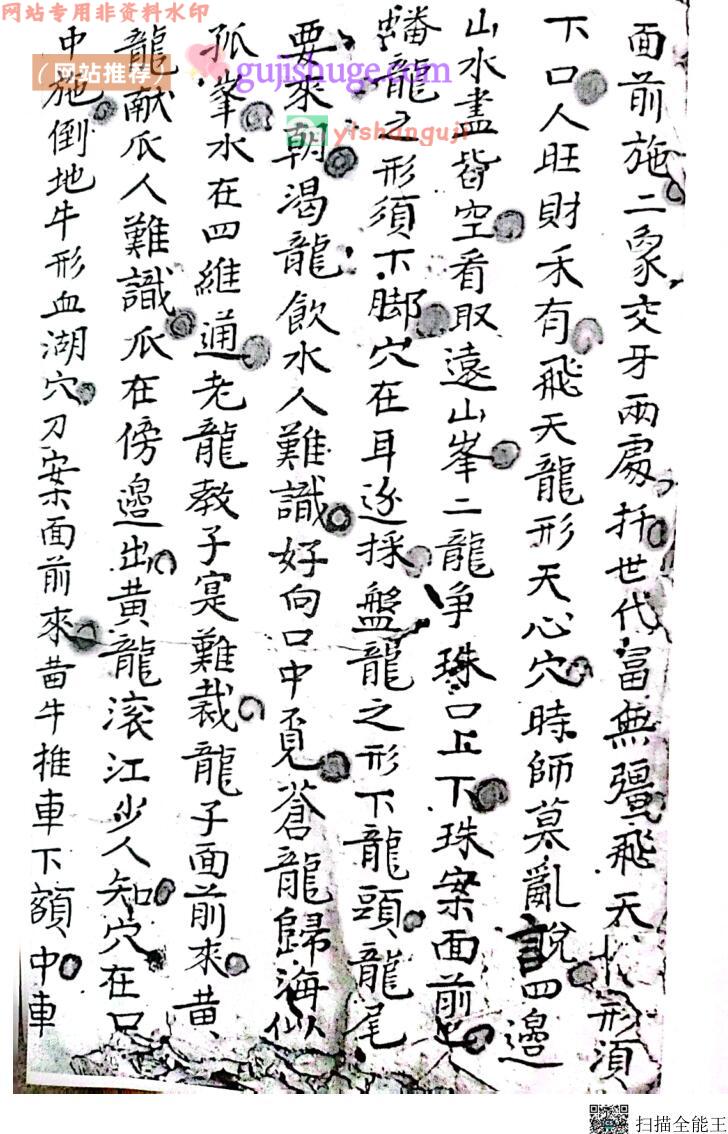 网站专用非资料水印
（网站推荐）
gujishuge.com
yishanguji
面前施二象交牙兩處扦世代富無彊飛天形須
下口人旺財禾有飛天龍形天心穴時師莫亂說四邉
山水盡皆空看取遠山峯二龍争珠口上下珠案面前
蟠龍之形須下脚穴在耳邉採盤龍之形下龍頭龍尾
要來朝渴龍飲水人難識好向口中覓蒼龍歸海似
孤峯水在四維通老龍教子寔難裁龍子面前來黄
龍献爪人難識爪在傍邉出黄龍滚江少人知穴在口
中施倒地牛形血湖穴刀案面前來黄牛推車下額中車
扫描全能王